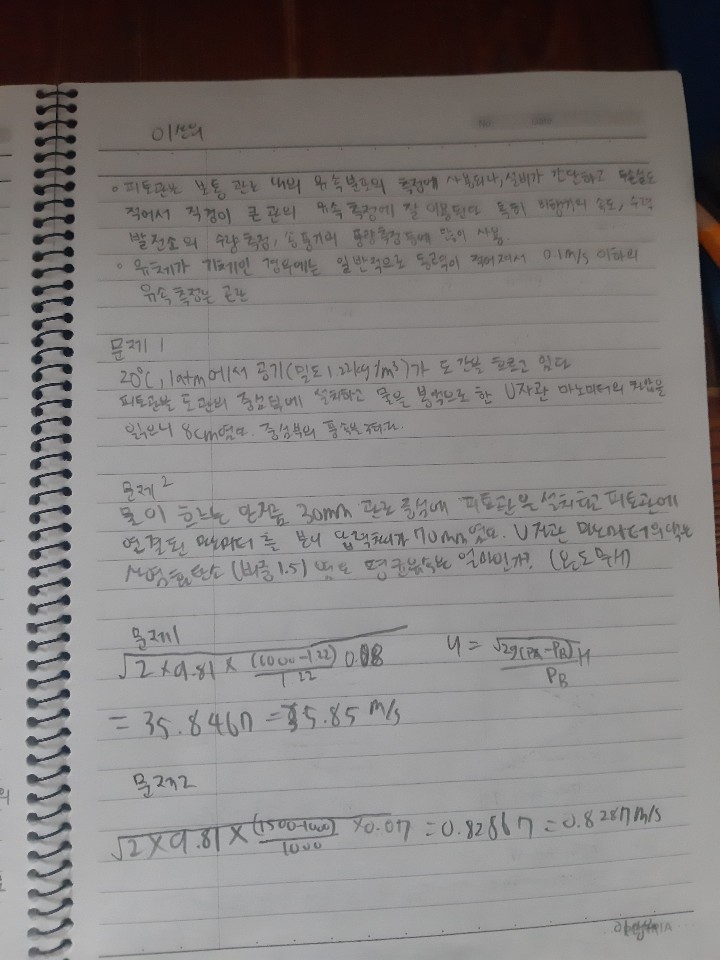 이상유
◦ 피토관은 보통 관로 내의 유속분포의 측정에 사용되나, 설비가 간단하고
적어서 직경이 큰 관의 유속 측정에 잘 이용된다 특히 비행기의 속도, 수력
발전소의 수량측정, 송풍기의 풍량측정 등에 많이 사용.
◦ 유체가 기체인 경우에는 일반적으로 동력이 적어져서 0.1m/s 이하의
유속 측정은 곤란
문제 1
20℃, 1atm에서 공기(밀도 1.22kg/m³)가 도 간을 흐르고 있다
피토관을 도관의 중심부에 설치하고 물을 봉액으로 한 U자관 마노미터의 차압을
읽으니 8cm였다. 중심부의 풍속을 구하라.
문제 2
물이 흐르는 안지름 30mm 관로 중심에 피토관을 설치하고 피토관에
연결된 마노미터를 보니 압력차가 70mm였다. U자관 마노미터의 액은
사염화탄소 (비중 1.5) 였다 평균유속은 얼마인가? (온도무시)
문제1
√2×9.81×(1000-1.22)/1.22 0.08 u = √2g(ρA-ρB)H/ρB
= 35.8467 = 35.85 m/s
문제2
√2×9.81×(1500-1000)/1000 ×0.07 = 0.82867 = 0.8287m/s